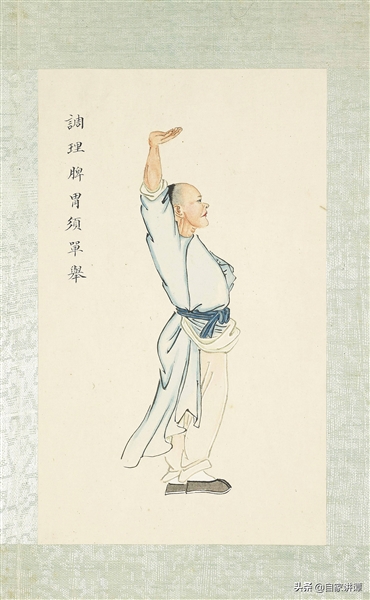 調理脾胃須單舉
头条@自家讲源